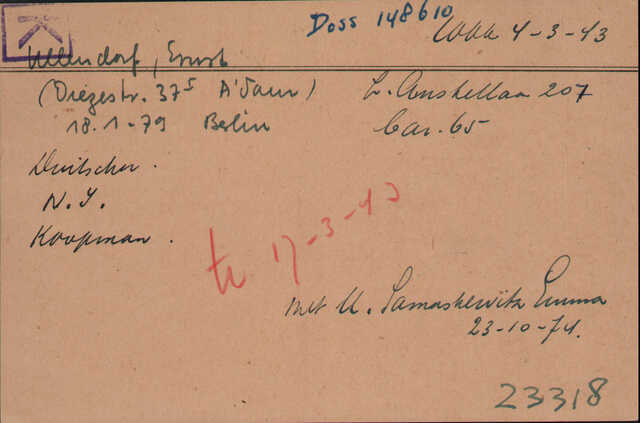 Doss 148610
4-3-43
Ullendorf, Ernst
(Diezestr. 37 I A'dam)
207
18.1-79 Berlin
Bar. 65
Deutscher.
N.I.
Koopman.
tr 17-3-43
met U. Samaskewitz Emma
23-10-74.
23318